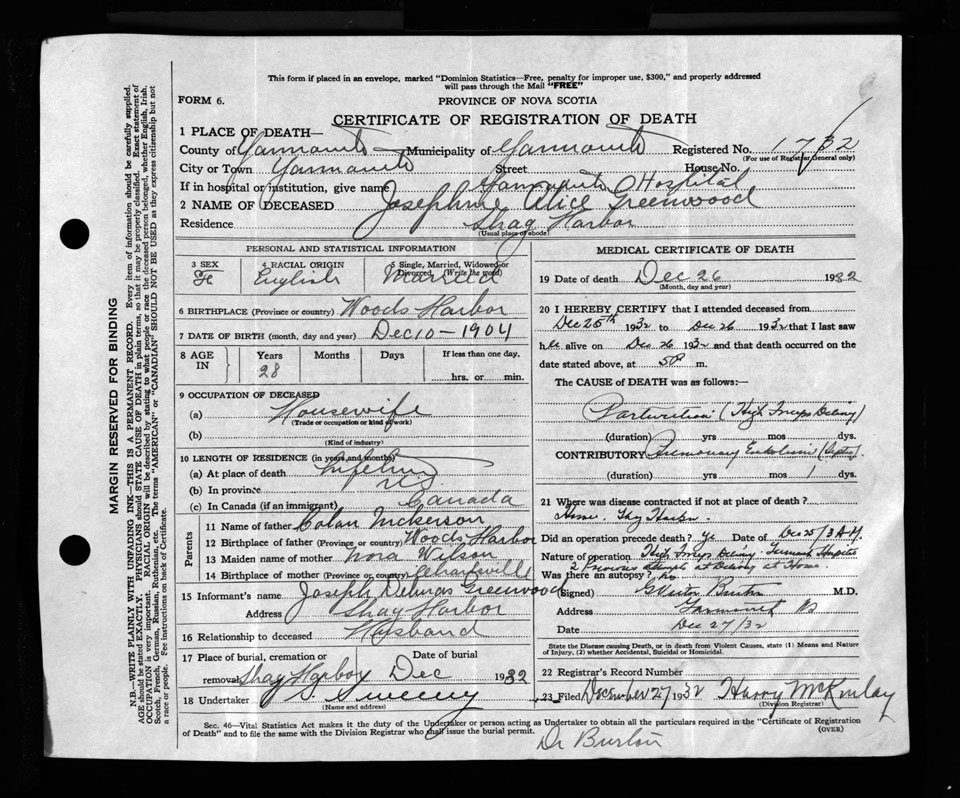 This form if placed in an envelope, marked "Dominion Statistics—Free, penalty for improper use, $300," and properly addressed
will pass through the Mail "FREE"
FORM 6.
PROVINCE OF NOVA SCOTIA
CERTIFICATE OF REGISTRATION OF DEATH
1 PLACE OF DEATH—
County of Yarmouth Municipality of Yarmouth Registered No. 1732
(For use of Registrar General only)
City or Town Yarmouth Street House No.
If in hospital or institution, give name Yarmouth Hospital
2 NAME OF DECEASED Josephine Alice Greenwood
Residence Shag Harbor
(Usual place of abode)
PERSONAL AND STATISTICAL INFORMATION
3 SEX F
4 RACIAL ORIGIN English
5 Single, Married, Widowed or Divorced. (Write the word) Married
6 BIRTHPLACE (Province or country) Woods Harbor
7 DATE OF BIRTH (month, day and year) Dec 10 - 1904
8 AGE IN Years Months Days If less than one day,
28 hrs. or min.
9 OCCUPATION OF DECEASED
(a) Housewife
(Trade or occupation or kind of work)
(b)
(Kind of industry)
10 LENGTH OF RESIDENCE (in years and months)
(a) At place of death Lifetime
(b) In province N S
(c) In Canada (if an immigrant) Canada
Parents
11 Name of father Colan Nickerson
12 Birthplace of father (Province or country) Woods Harbor
13 Maiden name of mother Nora Wilson
14 Birthplace of mother (Province or country)
15 Informant's name Joseph Delmas Greenwood
Address Shag Harbor
16 Relationship to deceased Husband
17 Place of burial, cremation or removal Date of burial
Shag Harbor Dec 1932
18 Undertaker Sweeney
(Name and address)
MEDICAL CERTIFICATE OF DEATH
19 Date of death Dec 26 1932
(Month, day and year)
20 I HEREBY CERTIFY that I attended deceased from
Dec 25th 1932 to Dec 26 1932 that I last saw
her alive on Dec 26 1932 and that death occurred on the
date stated above, at m.
The CAUSE of DEATH was as follows:
Parturition (High Forceps Delivery)
(duration) yrs mos dys.
CONTRIBUTORY Pulmonary Embolism (Septic).
(duration) yrs mos 1 dys.
21 Where was disease contracted if not at place of death?
Home. Shag Harbor.
Did an operation precede death? Yes Date of Dec 25/32
Nature of operation High Forceps Delivery
2 Previous attempts at Delivery at Home.
Was there an autopsy? No
(Signed) Burton M.D.
Address Yarmouth NS
Date Dec 27/32
State the Disease causing Death, or in death from Violent Causes, state (1) Means and Nature of Injury, (2) whether Accidental, Suicidal or Homicidal.
22 Registrar's Record Number
23 Filed December 27 1932 Harry McKinlay
(Division Registrar)
Sec. 46—Vital Statistics Act makes it the duty of the Undertaker or person acting as Undertaker to obtain all the particulars required in the "Certificate of Registration
of Death" and to file the same with the Division Registrar who shall issue the burial permit.
(OVER)
Dr Burton
MARGIN RESERVED FOR BINDING
N.B.—WRITE PLAINLY WITH UNFADING INK—THIS IS A PERMANENT RECORD. Every item of information should be carefully supplied.
AGE should be stated EXACTLY. PHYSICIANS should STATE CAUSE OF DEATH in plain terms, so that it may be properly classified. Exact statement of
OCCUPATION is very important. RACIAL ORIGIN will be described by stating to what people or race the deceased person belonged, whether English, Irish,
Scotch, French, German, Russian, Ruthenian, etc. The terms "AMERICAN" or "CANADIAN" SHOULD NOT BE USED as they express citizenship but not
a race or people. See instructions on back of Certificate.